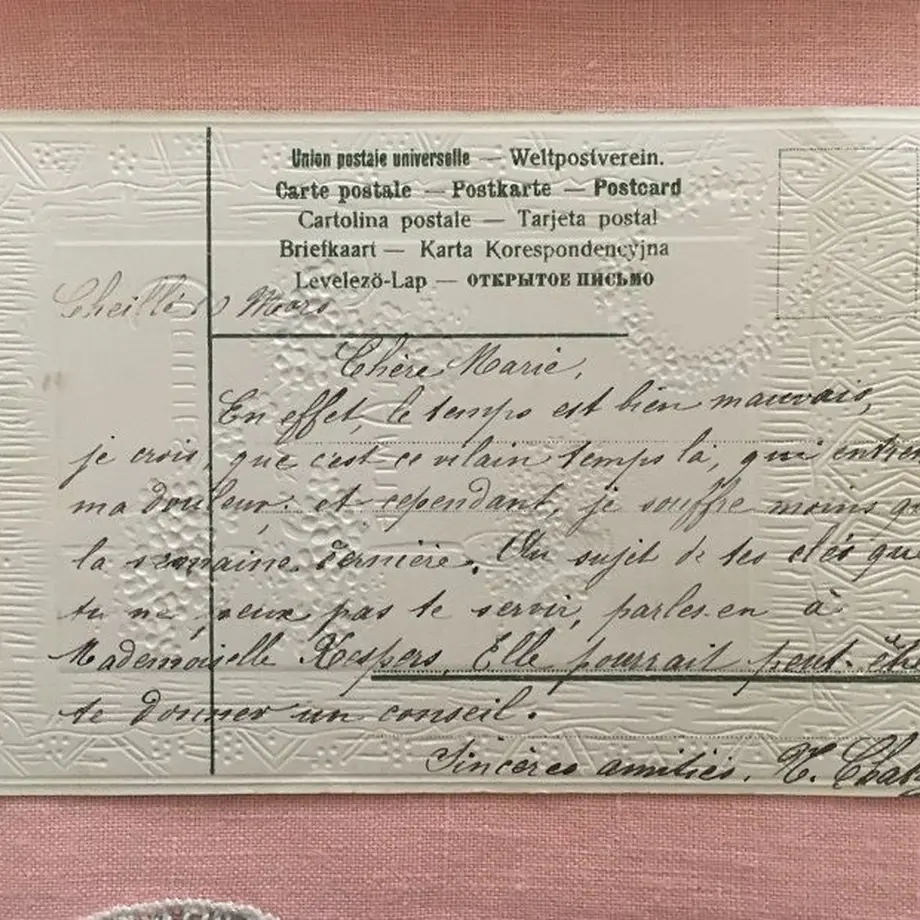 Union postale universelle — Weltpostverein.
Carte postale — Postkarte — Postcard
Cartolina postale — Tarjeta postal
Briefkaart — Karta Korespondencyjna
Levelező-Lap — ОТКРЫТОЕ ПИСЬМО
Cheillé Mars
Chère Marie,
En effet, le temps est bien mauvais,
je crois, que c'est ce vilain temps là, qui
ma douleur, et cependant, je souffre moins
la semaine dernière. Au sujet de tes clés que
tu ne peux pas te servir, parles-en à
Mademoiselle Elle pourrait peut-
te donner un conseil.
Sincères amitiés.